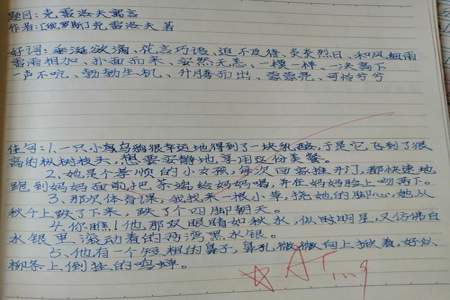 题目:克雷洛夫寓言
作者:[俄罗斯]克雷洛夫 著
好词:垂涎欲滴、花言巧语、迫不及待、炎炎烈日、和风细雨
雷雨相加、扑面而来、安然无恙、一模一样、一决高下
一声不吭、勃勃生机、升腾而出、、可怜兮兮
佳句:1.一只小乌鸦很幸运地得到了一块乳酪,于是它飞到了很
高的枞树枝头,想要安静地享用这份美餐。
2、她是个孝顺的小女孩,每次回家推开门,都快速地
跑到妈妈面前,把茶端给妈妈喝,并在妈妈脸上吻两下。
3、那次体育课,我找来一根小草,挠她的脚心,她从
秋千上跌了下来,跌了个四脚朝天。
4、你瞧!他那双眼睛如秋水,似晨明星,又仿佛白
水银里滚动着的两湾黑水银。
5、他有一个短粗的鼻子,鼻孔微微向上掀着,好似
柳条上倒挂的鸣蝉。
A